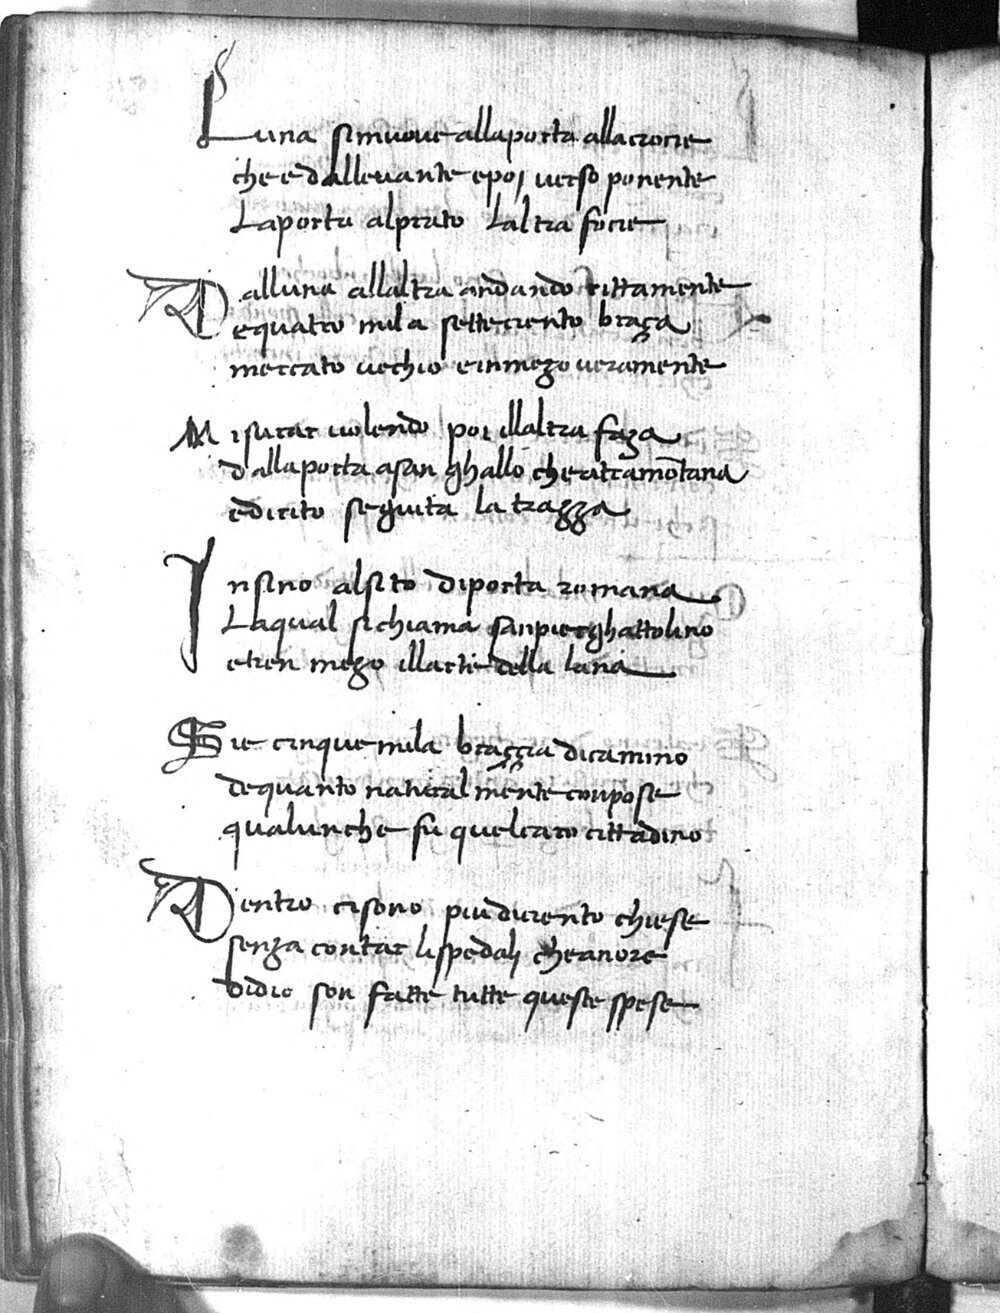 Luna simuove allaporta allacrocie
che e dallevante epoi verso ponente
Laporta alprato laltra focie
Dalluna allaltra andando rittamente
equatro mila setteciento braça
mercato vechio einmezo veramente
Misurar volendo poi illaltra faza
dallaporta asan ghallo che attramōtana
edirito seguita la trazza
Jnsino alsito diporta romana
Laqual sichiama sanpierghattolino
etien mezo illarte della lana
Sie cinque mila braccia dicamino
dequanto natural mente conpose
qualunche fu quelcaro cittadino
Dentro cisono piuduciento chiese
senza contar lispedali che anore
didio son fatte tutte queste spese